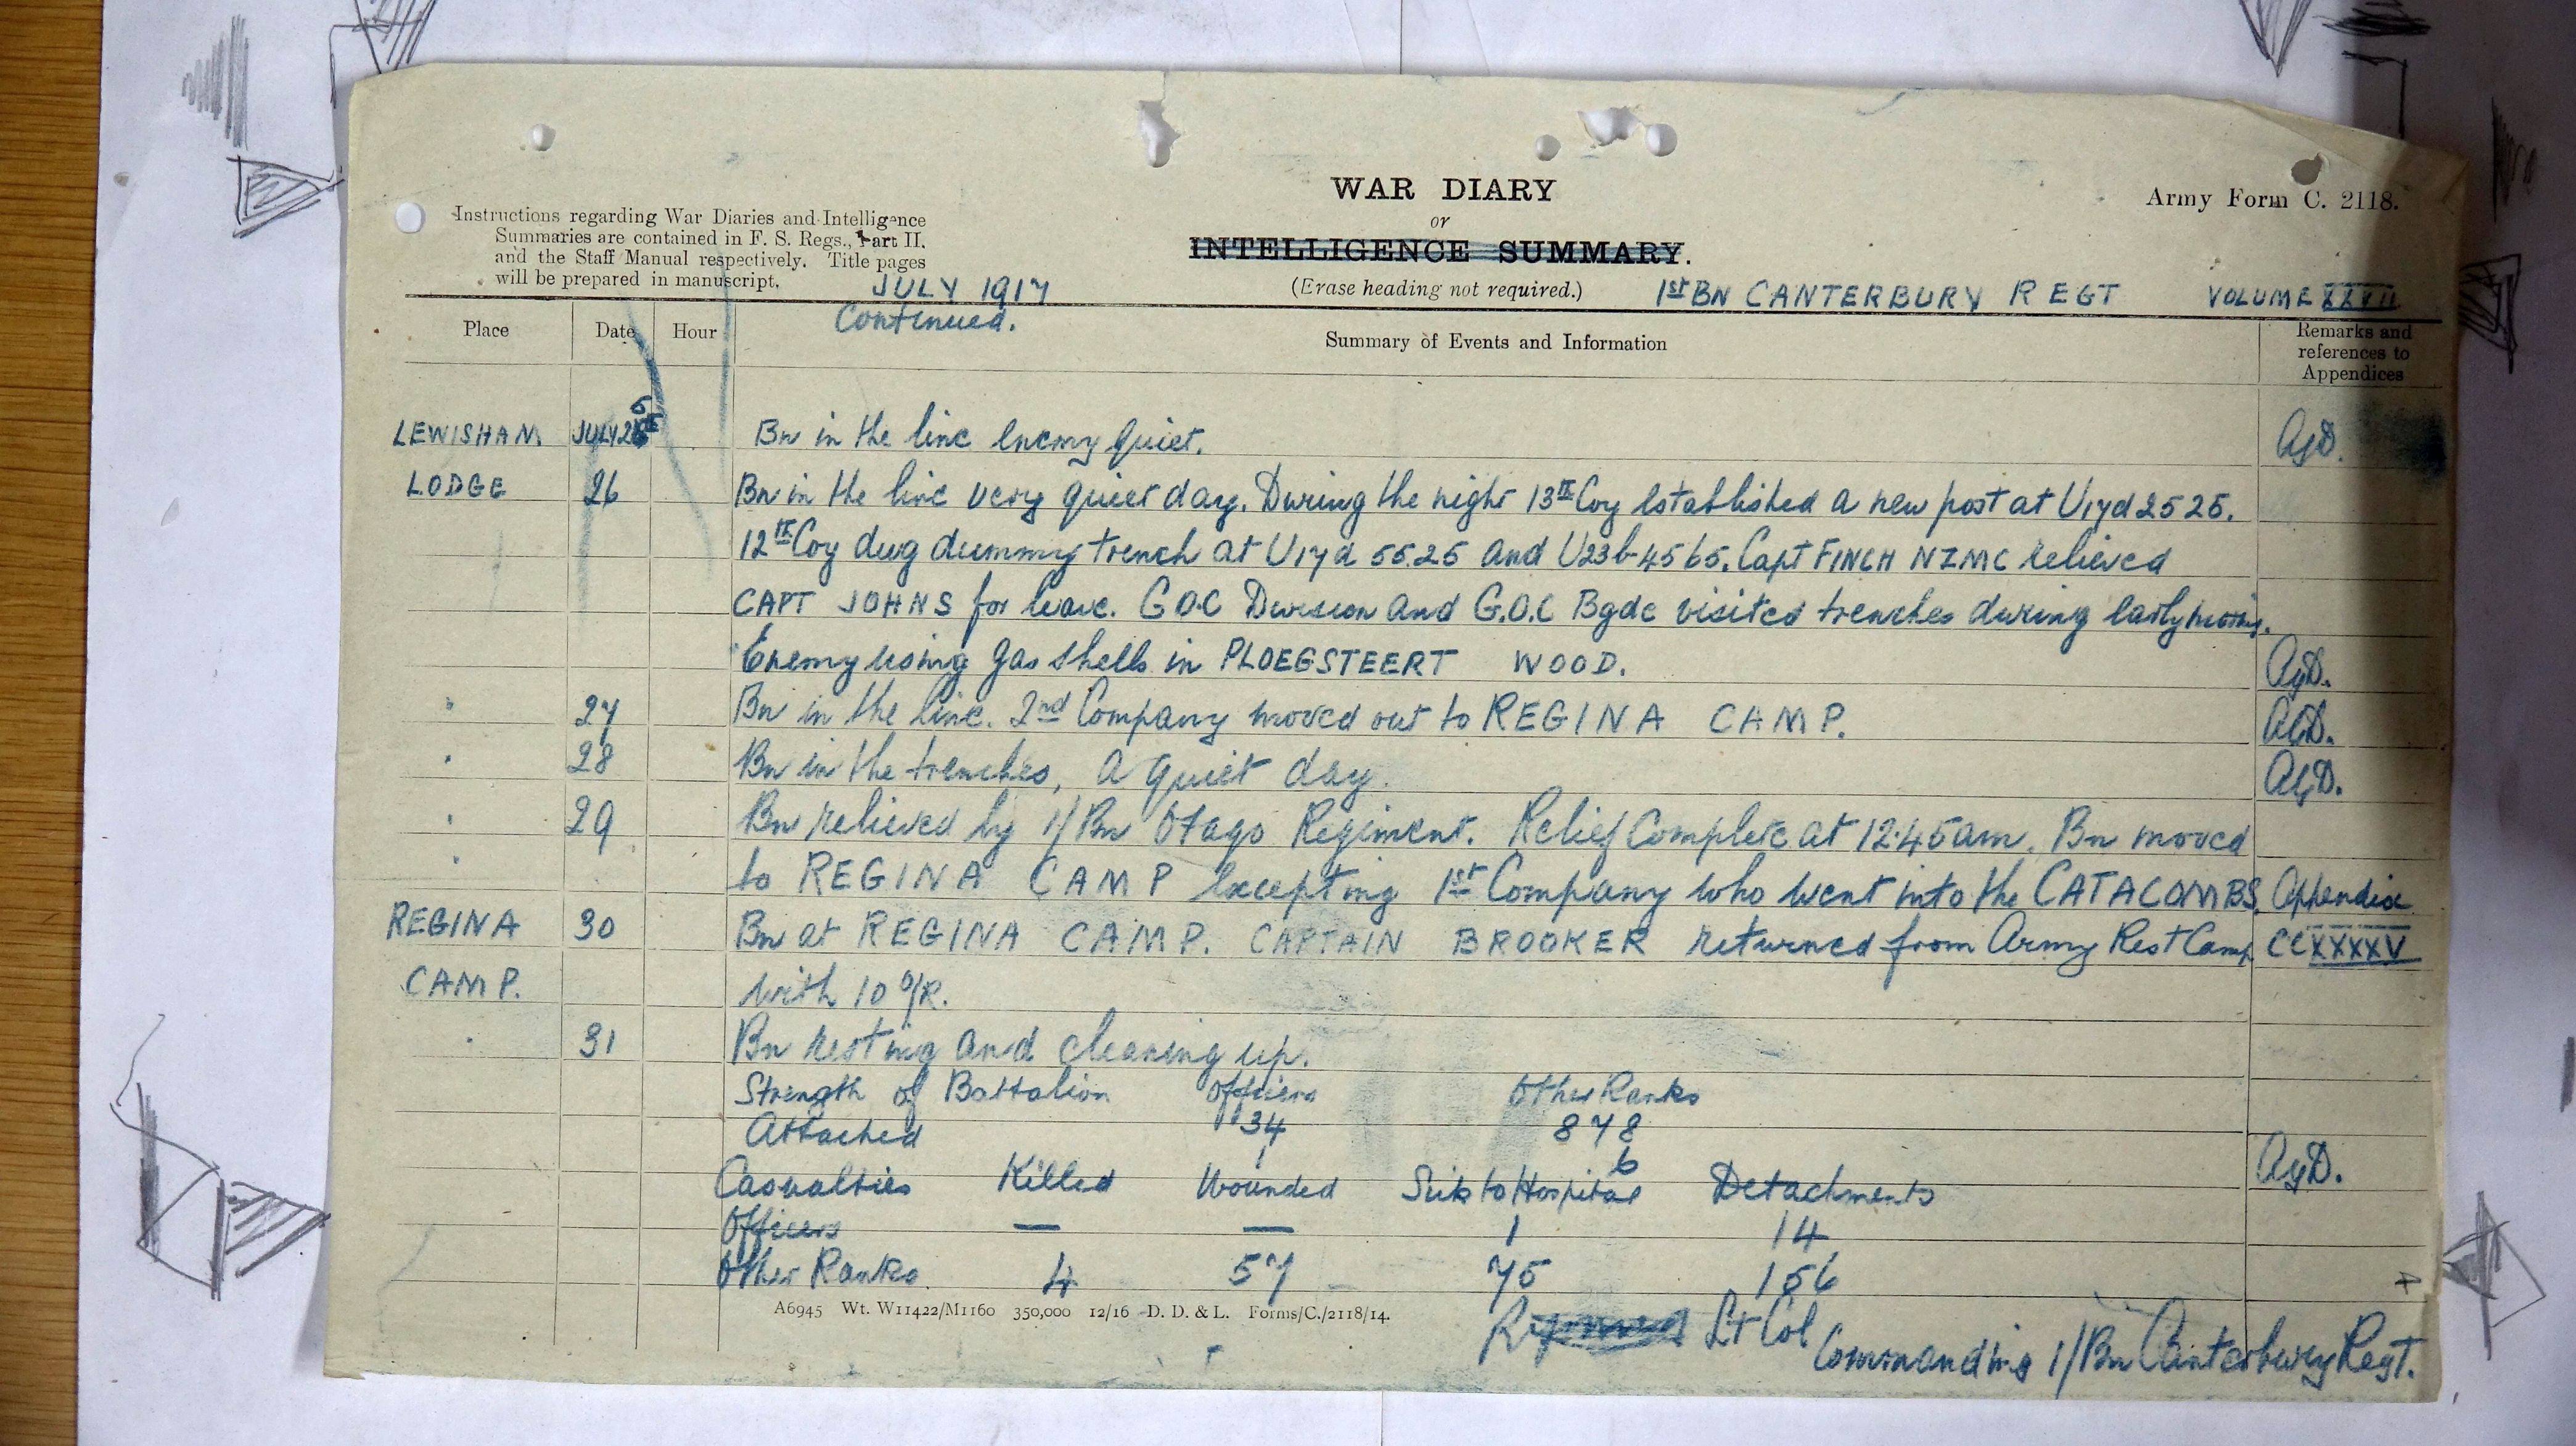 WAR DIARY
or
INTELLIGENCE SUMMARY.
(Erase heading not required.)
Army Form C. 2118.
Instructions regarding War Diaries and Intelligence
Summaries are contained in F. S. Regs., Part II.
and the Staff Manual respectively. Title pages
will be prepared in manuscript.
JULY 1917
Continued.
1st BN CANTERBURY REGT VOLUME XXVII
Place Date Hour Summary of Events and Information Remarks and references to Appendices
LEWISHAM JULY 25 Bn in the line Enemy quiet. AGD.
LODGE 26 Bn in the line very quiet day. During the night 13th Coy established a new post at U17d 25 25.
12th Coy dug dummy trench at U17d 55.25 and U23b 45 65. Capt FINCH NZMC relieved
CAPT JOHNS for leave. G.O.C Division and G.O.C Bgde visited trenches during early morning.
Enemy using gas shells in PLOEGSTEERT WOOD. AGD.
" 27 Bn in the line. 2nd Company moved out to REGINA CAMP. AGD.
" 28 Bn in the trenches, a quiet day. AGD.
" 29 Bn relieved by 1/Bn Otago Regiment. Relief Complete at 12.45am. Bn moved
" to REGINA CAMP excepting 1st Company who went into the CATACOMBS. Appendix
REGINA 30 Bn at REGINA CAMP. CAPTAIN BROOKER returned from Army Rest Camp CCXXXXV
CAMP. with 10 O/R.
" 31 Bn resting and cleaning up.
Strength of Battalion Officers Other Ranks
34 878
Attached 1 6 AGD.
Casualties Killed Wounded Sick to Hospital Detachments
Officers — — 1 14
Other Ranks 4 57 75 156
A6945 Wt. W11422/M1160 350,000 12/16 D. D. & L. Forms/C./2118/14.
Lt Col
Commanding 1/Bn Canterbury Regt.